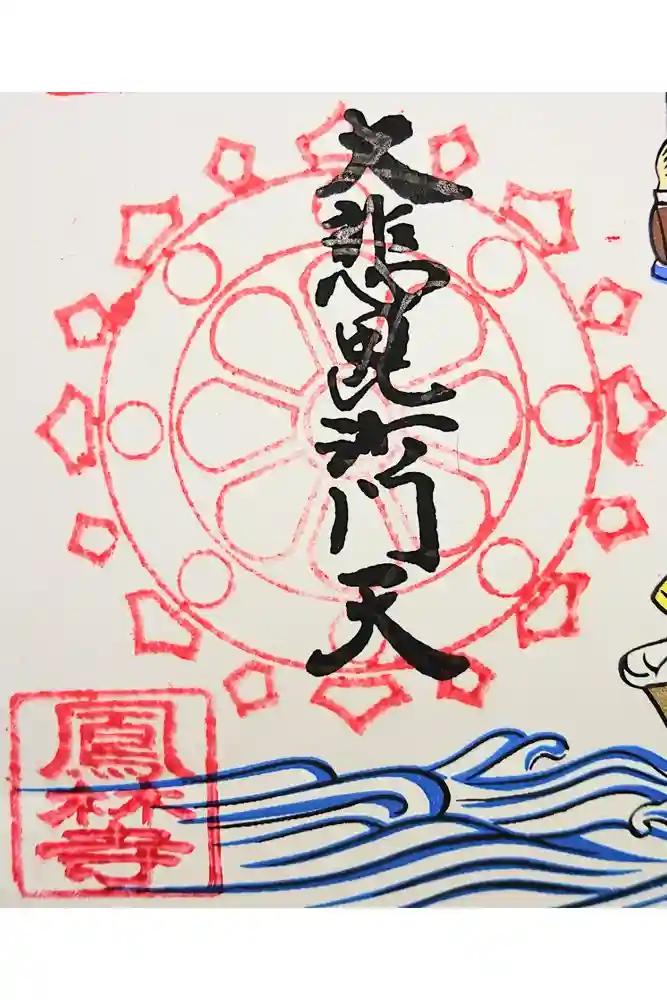 大悲毘沙門天
鳳林寺